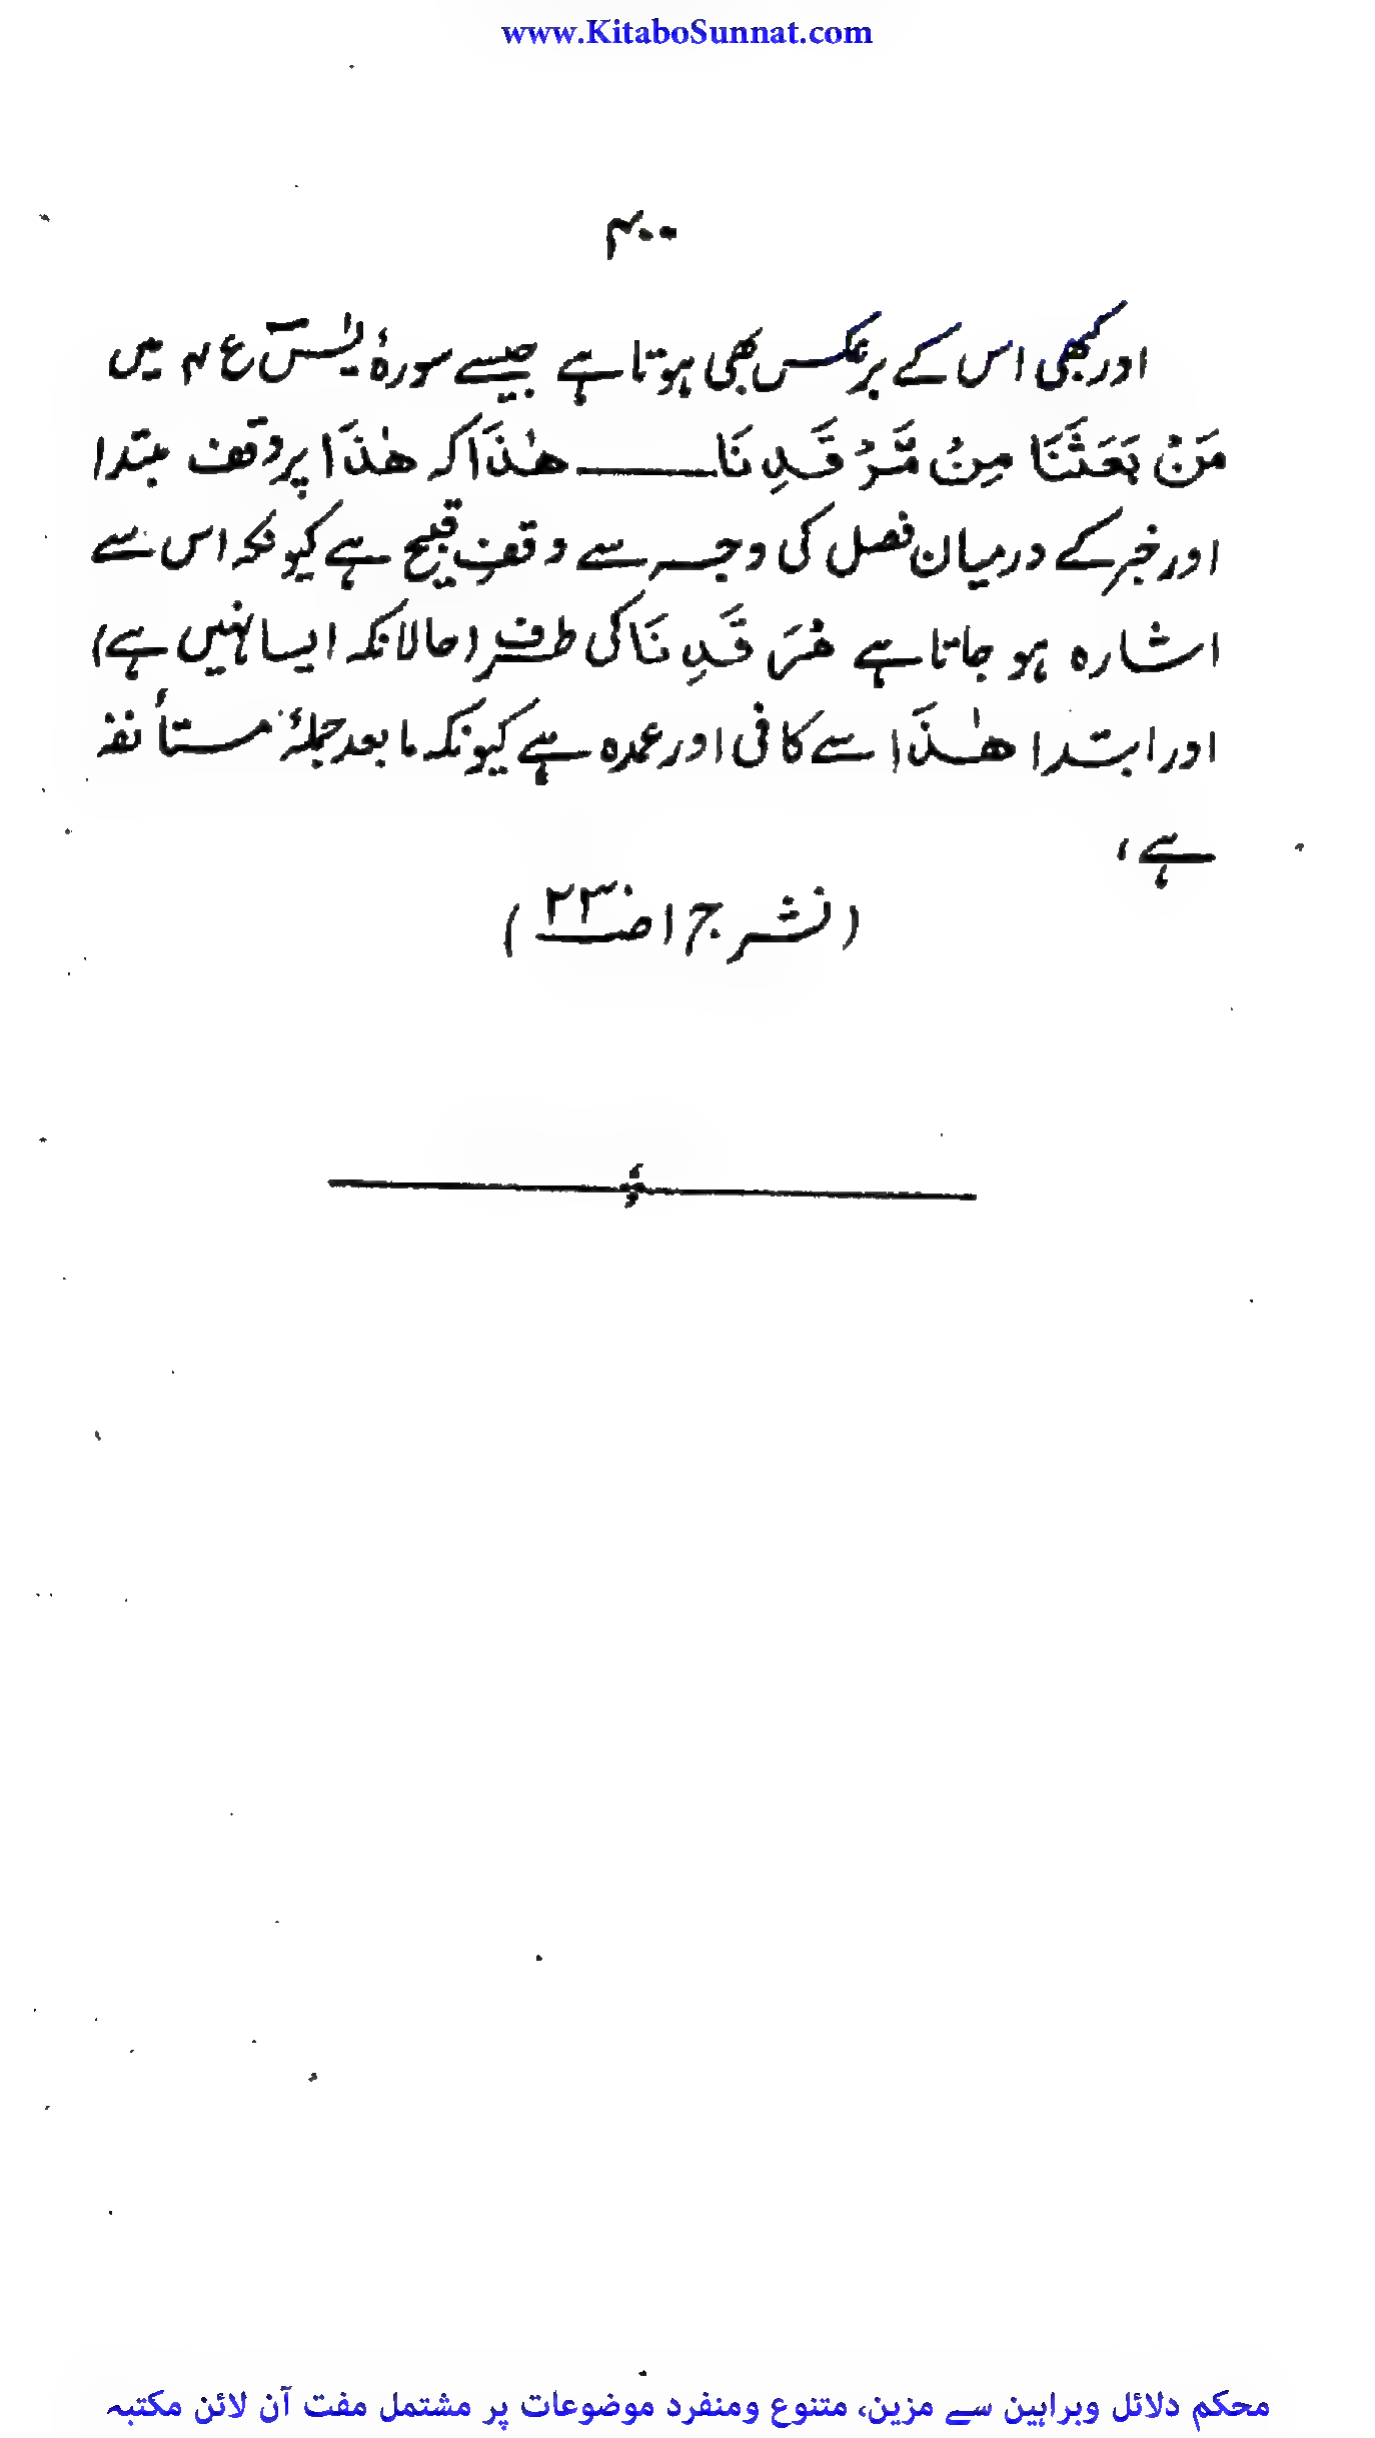 www.KitaboSunnat.com
۴۰۰
اور کبھی اس کے برعکس بھی ہوتا ہے جیسے سورۂ یٰسٓ ع ۴ میں
مَنْ بَعَثَنَا مِنْ مَّرْقَدِنَا ــــــ هٰذَا کہ هٰذَا پر وقف مبتدا
اور خبر کے درمیان فصل کی وجہ سے وقفِ قبیح ہے کیونکہ اس سے
اشارہ ہو جاتا ہے مَرْقَدِنَا کی طرف (حالانکہ ایسا نہیں ہے)
اور ابتدا هٰذَا سے کافی اور عمدہ ہے کیونکہ ما بعد جملۂ مستأنفہ
ہے،
(نشر ج ۱ ص ۲۳۰)
محکم دلائل وبراہین سے مزین، متنوع ومنفرد موضوعات پر مشتمل مفت آن لائن مکتبہ